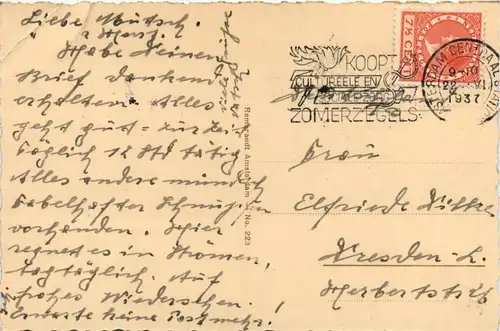 Liebe Mutsch.
Habe Deinen
Brief dankend
erhalten. Alles
geht gut = zur Zeit
täglich 12 Std tätig
Alles andere mündlich
Fabelhafter Schnupfen
vorhanden. Hier
regnet es in Strömen,
tagtäglich. Auf
frohes Wiedersehen.
Erwarte keine Post mehr!
Rembrandt Amsterdam No. 223
KOOPT
CULTUREELE EN
ZOMERZEGELS
7½ CENT
AMSTERDAM CENTRAAL
1937
Frau
Elfriede
Dresden-